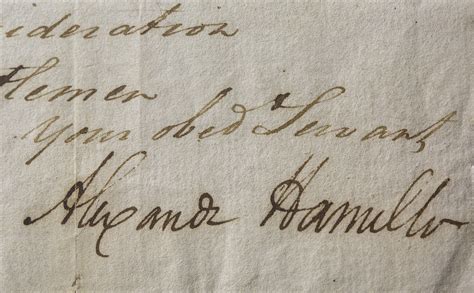 ideration
tlemen
Your obed Servant
Alexandr Hamilton